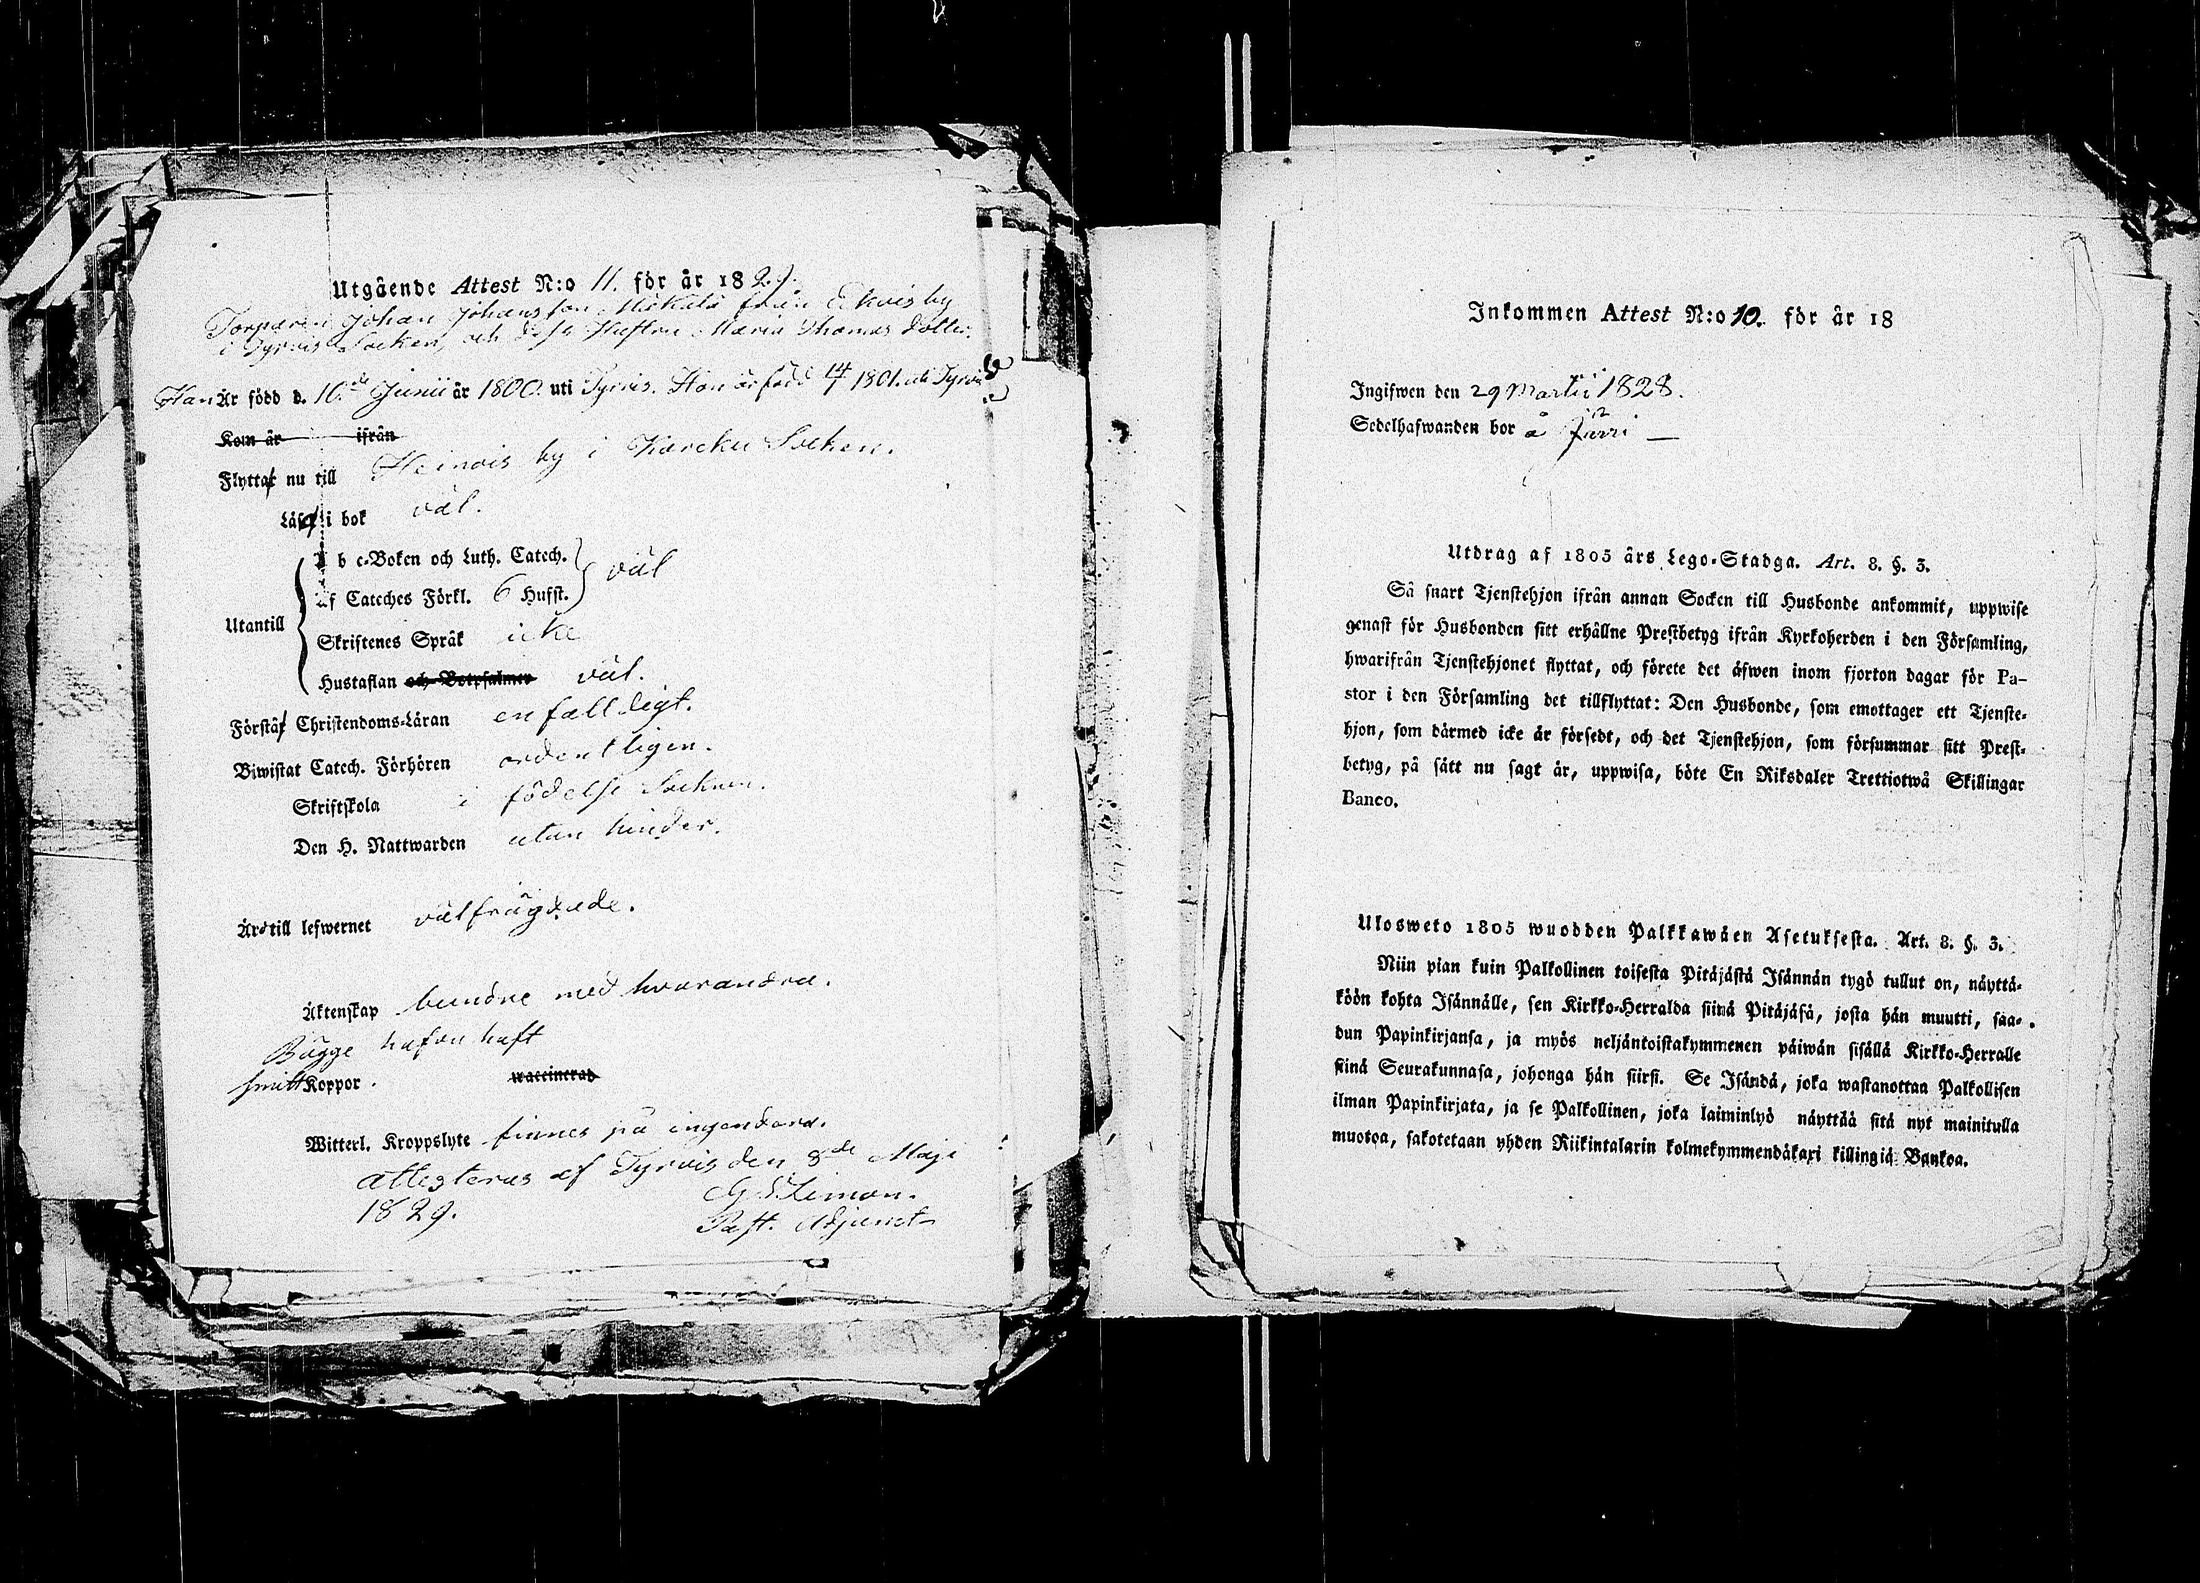 Utgående Attest N:o 11. för år 1829.
Torparen Johan Johansson från Ekvis by
i Tyrvis Socken, och dess Hustru Maria Thomas dotter.
Han Är född d. 10.de Junii år 1800. uti Tyrvis. Hon är född 14/7 1801. uti Tyrvis
Kom år ifrån
Flytta nu till Heinois by i Karcku Socken.
Läsa i bok väl.
A b c-Boken och Luth. Catech.
väl
af Cateches Förkl. 6 Hufst.
Utantill
Skriftenes Språk icke
Hustaflan och Botpsalmer väl.
Förstå Christendoms-Läran enfalldigt.
Biwistat Catech. Förhören ordentligen.
Skriftskola i födelse Socknen.
Den H. Nattwarden utan hinder.
Äro till lefwernet välfrägdade.
Äktenskap bundne med hvarandra.
Bägge hafva haft
smitt Koppor. vaccinerad
Witterl. Kroppslyte finnes på ingendera.
attesteras af Tyrvis den 8de Maji
1829.
Past. Adjunct
Inkommen Attest N:o 10. för år 18
Ingifwen den 29 Martii 1828.
Sedelhafwanden bor å Järri
Utdrag af 1805 års Lego-Stadga. Art. 8. §. 3.
Så snart Tjenstehjon ifrån annan Socken till Husbonde ankommit, uppwise
genast för Husbonden sitt erhållne Prestbetyg ifrån Kyrkoherden i den Församling,
hwarifrån Tjenstehjonet flyttat, och förete det äfwen inom fjorton dagar för Pa-
stor i den Församling det tillflyttat: Den Husbonde, som emottager ett Tjenste-
hjon, som därmed icke är försedt, och det Tjenstehjon, som försummar sitt Prest-
betyg, på sätt nu sagt är, uppwisa, böte En Riksdaler Trettiotwå Skillingar
Banco.
Ulosweto 1805 wuodden Palkkawäen Asetuksesta. Art. 8. §. 3.
Niin pian kuin Palkollinen toisesta Pitäjästä Isännän tygö tullut on, näyttä-
köön kohta Isännälle, sen Kirkko-Herralda siinä Pitäjäsä, josta hän muutti, saa-
dun Papinkirjansa, ja myös neljäntoistakymmenen päiwän sisällä Kirkko-Herralle
siinä Seurakunnasa, johonga hän siirsi. Se Isändä, joka wastanottaa Palkollisen
ilman Papinkirjata, ja se Palkollinen, joka laiminlyö näyttää sitä nyt mainitulla
muotoa, sakotetaan yhden Riikintalarin kolmekymmendäkaxi killingiä Bankoa.